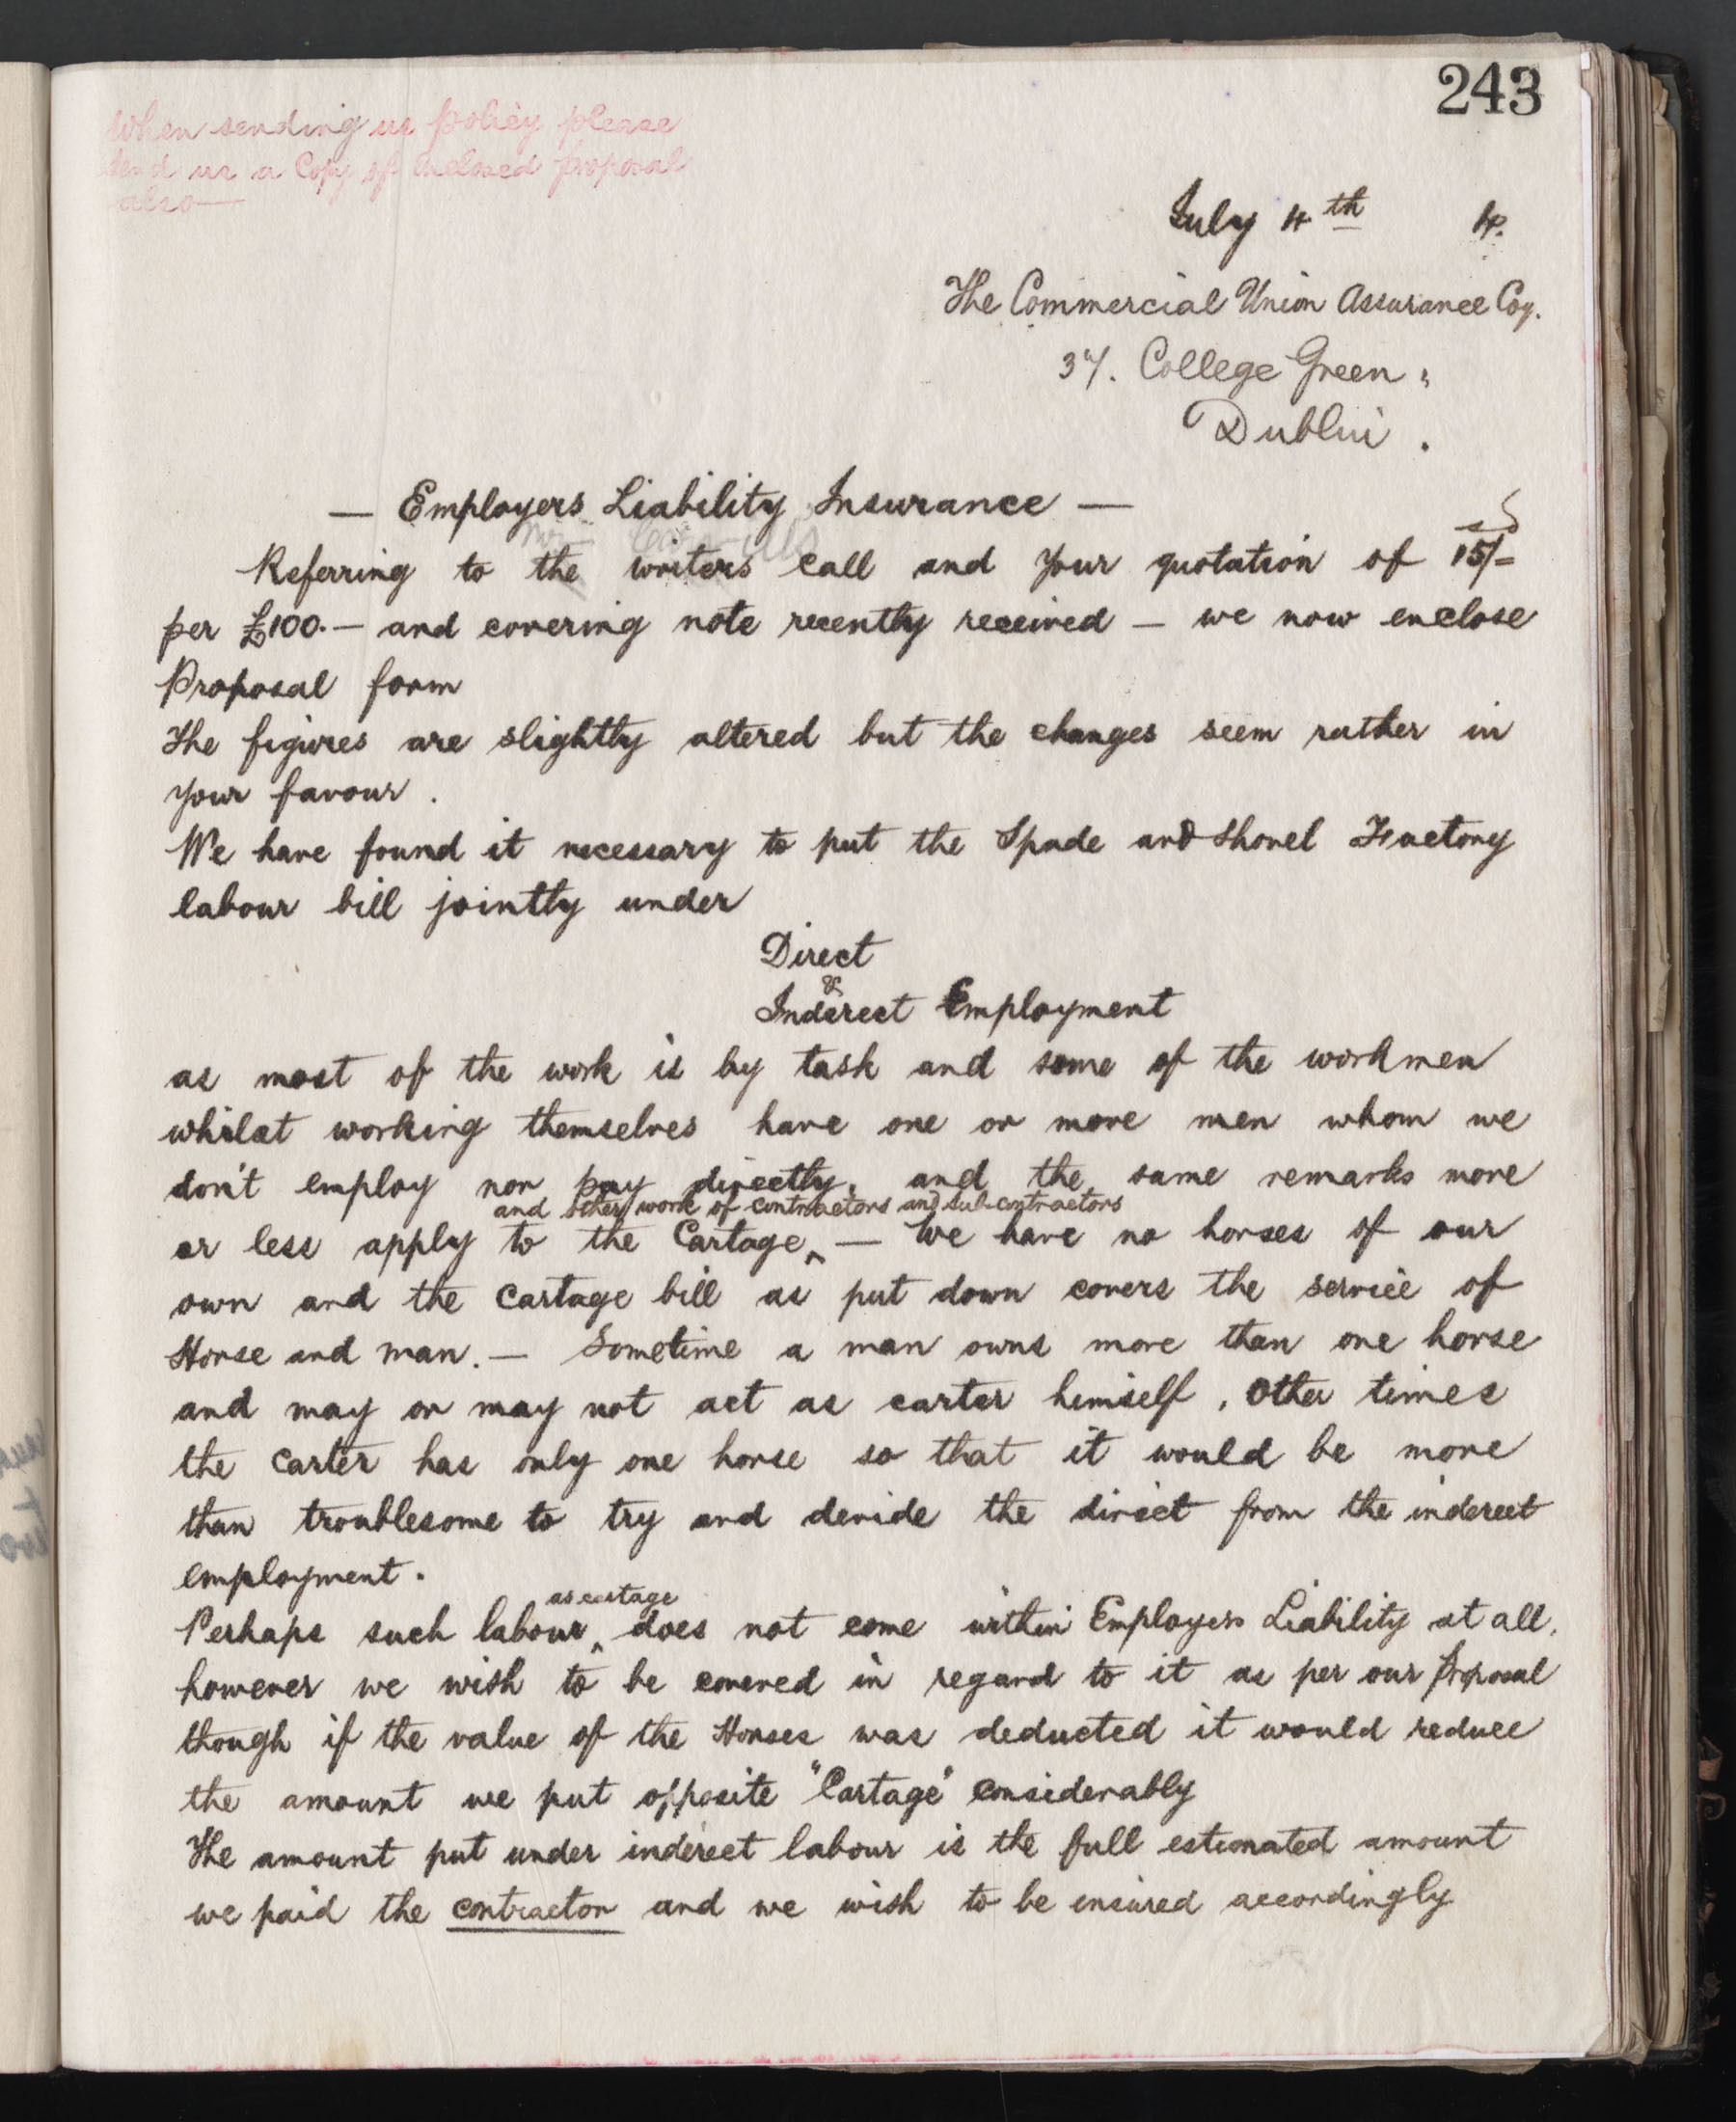 243
When sending us policy please
send us a Copy of Enclosed proposal
also—
July 4th 4.
The Commercial Union Assurance Coy.
37. College Green,
Dublin.
— Employers Liability Insurance —
Referring to the writers call and your quotation of 15/-
per £100.— and covering note recently received — we now enclose
Proposal form
The figures are slightly altered but the changes seem rather in
your favour.
We have found it necessary to put the Spade and Shovel Factory
labour bill jointly under
Direct
&
Inderect Employment
as most of the work is by task and some of the workmen
whilst working themselves have one or more men whom we
don't employ nor pay directly, and the same remarks more
and other work of contractors and sub-contractors
or less apply to the Cartage ‸ — We have no horses of our
own and the Cartage bill as put down covers the service of
Horse and man. — Sometime a man owns more than one horse
and may or may not act as carter himself. Other times
the carter has only one horse so that it would be more
than troublesome to try and devide the direct from the inderect
employment.
as cartage
Perhaps such labour ‸ does not come within Employers Liability at all,
however we wish to be covered in regard to it as per our proposal
though if the value of the Horses was deducted it would reduce
the amount we put opposite "Cartage" considerably
The amount put under inderect labour is the full estimated amount
we paid the contractor and we wish to be ensured accordingly